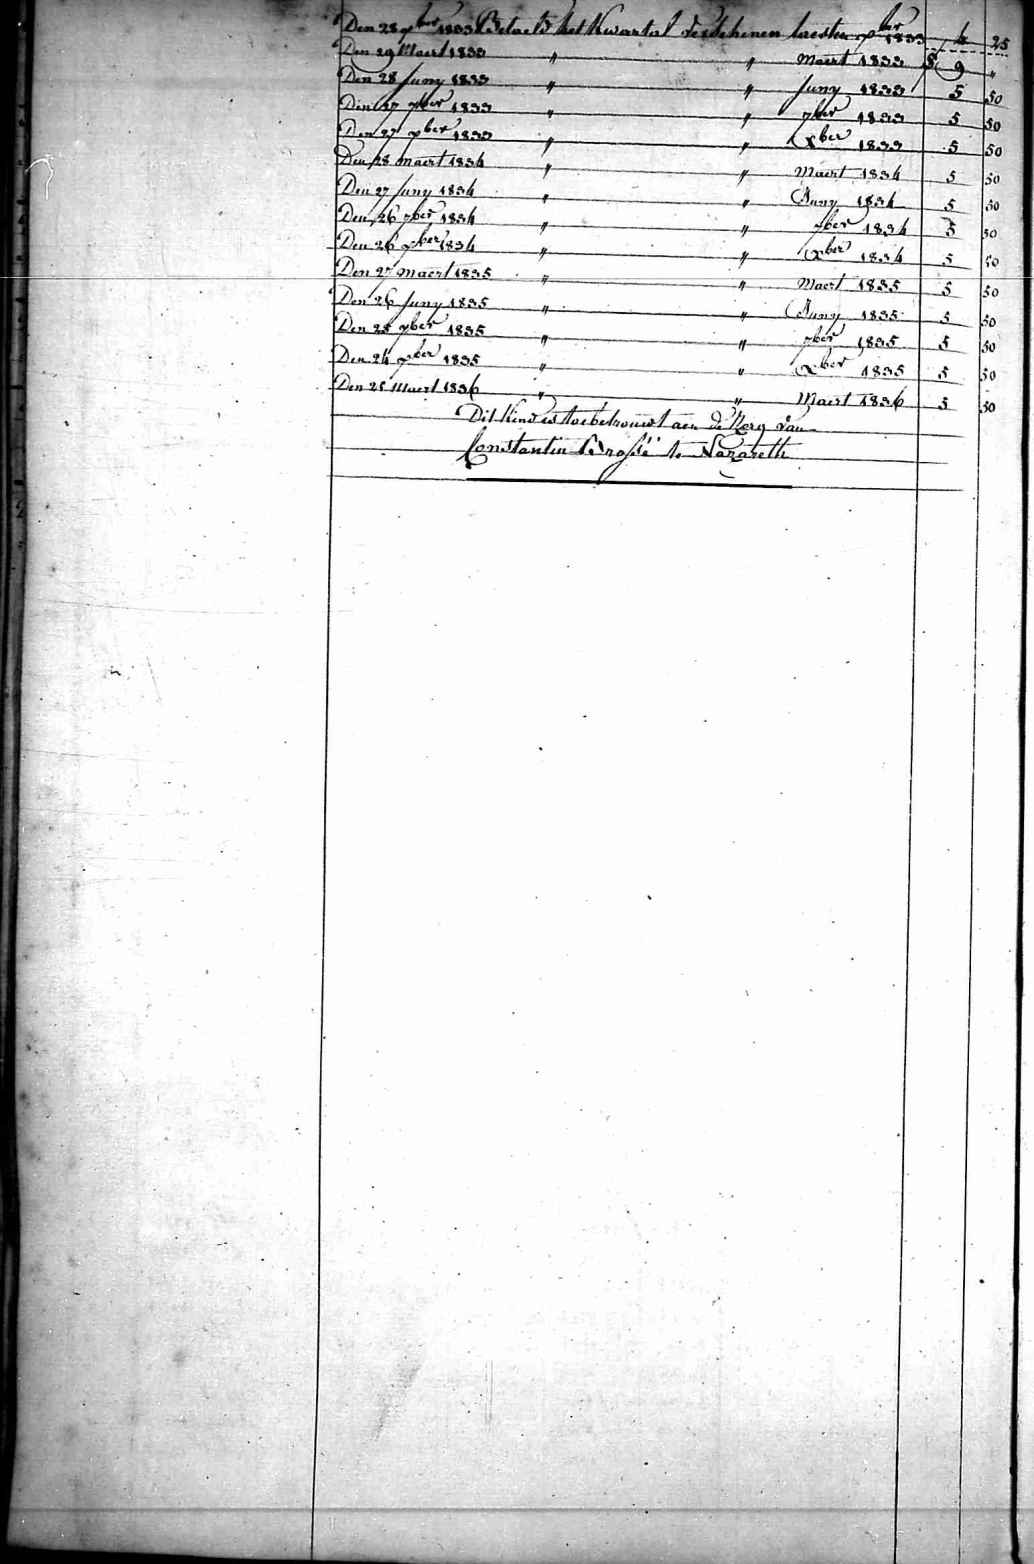 Den 28 xber 1833 Betaeld het Kwartal verschenen laesten xber 1833 4 25
Den 29 Maert 1833 " " Maert 1833 9 "
Den 28 Juny 1833 " " Juny 1833 5 50
Den 27 7ber 1833 " " 7ber 1833 5 50
Den 27 xber 1833 " " Xber 1833 5 50
Den 28 maert 1834 " " Maert 1834 5 50
Den 27 Juny 1834 " " Juny 1834 5 50
Den 26 7ber 1834 " " 7ber 1834 5 50
Den 26 xber 1834 " " Xber 1834 5 50
Den 27 maert 1835 " " Maert 1835 5 50
Den 26 Juny 1835 " " Juny 1835 5 50
Den 25 7ber 1835 " " 7ber 1835 5 50
Den 24 xber 1835 " " Xber 1835 5 50
Den 25 Maert 1836 " " Maert 1836 5 50
Dit Kind is toebetrouwt aen de Zorg van
Constantin te Nazareth